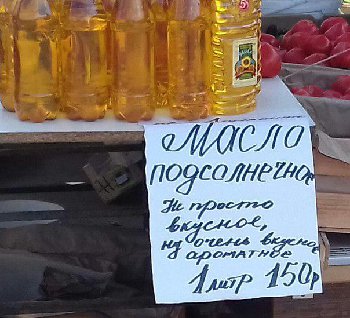 Масло
подсолнечное
Не просто
вкусное,
ну очень вкусное
ароматное
1 литр 150р